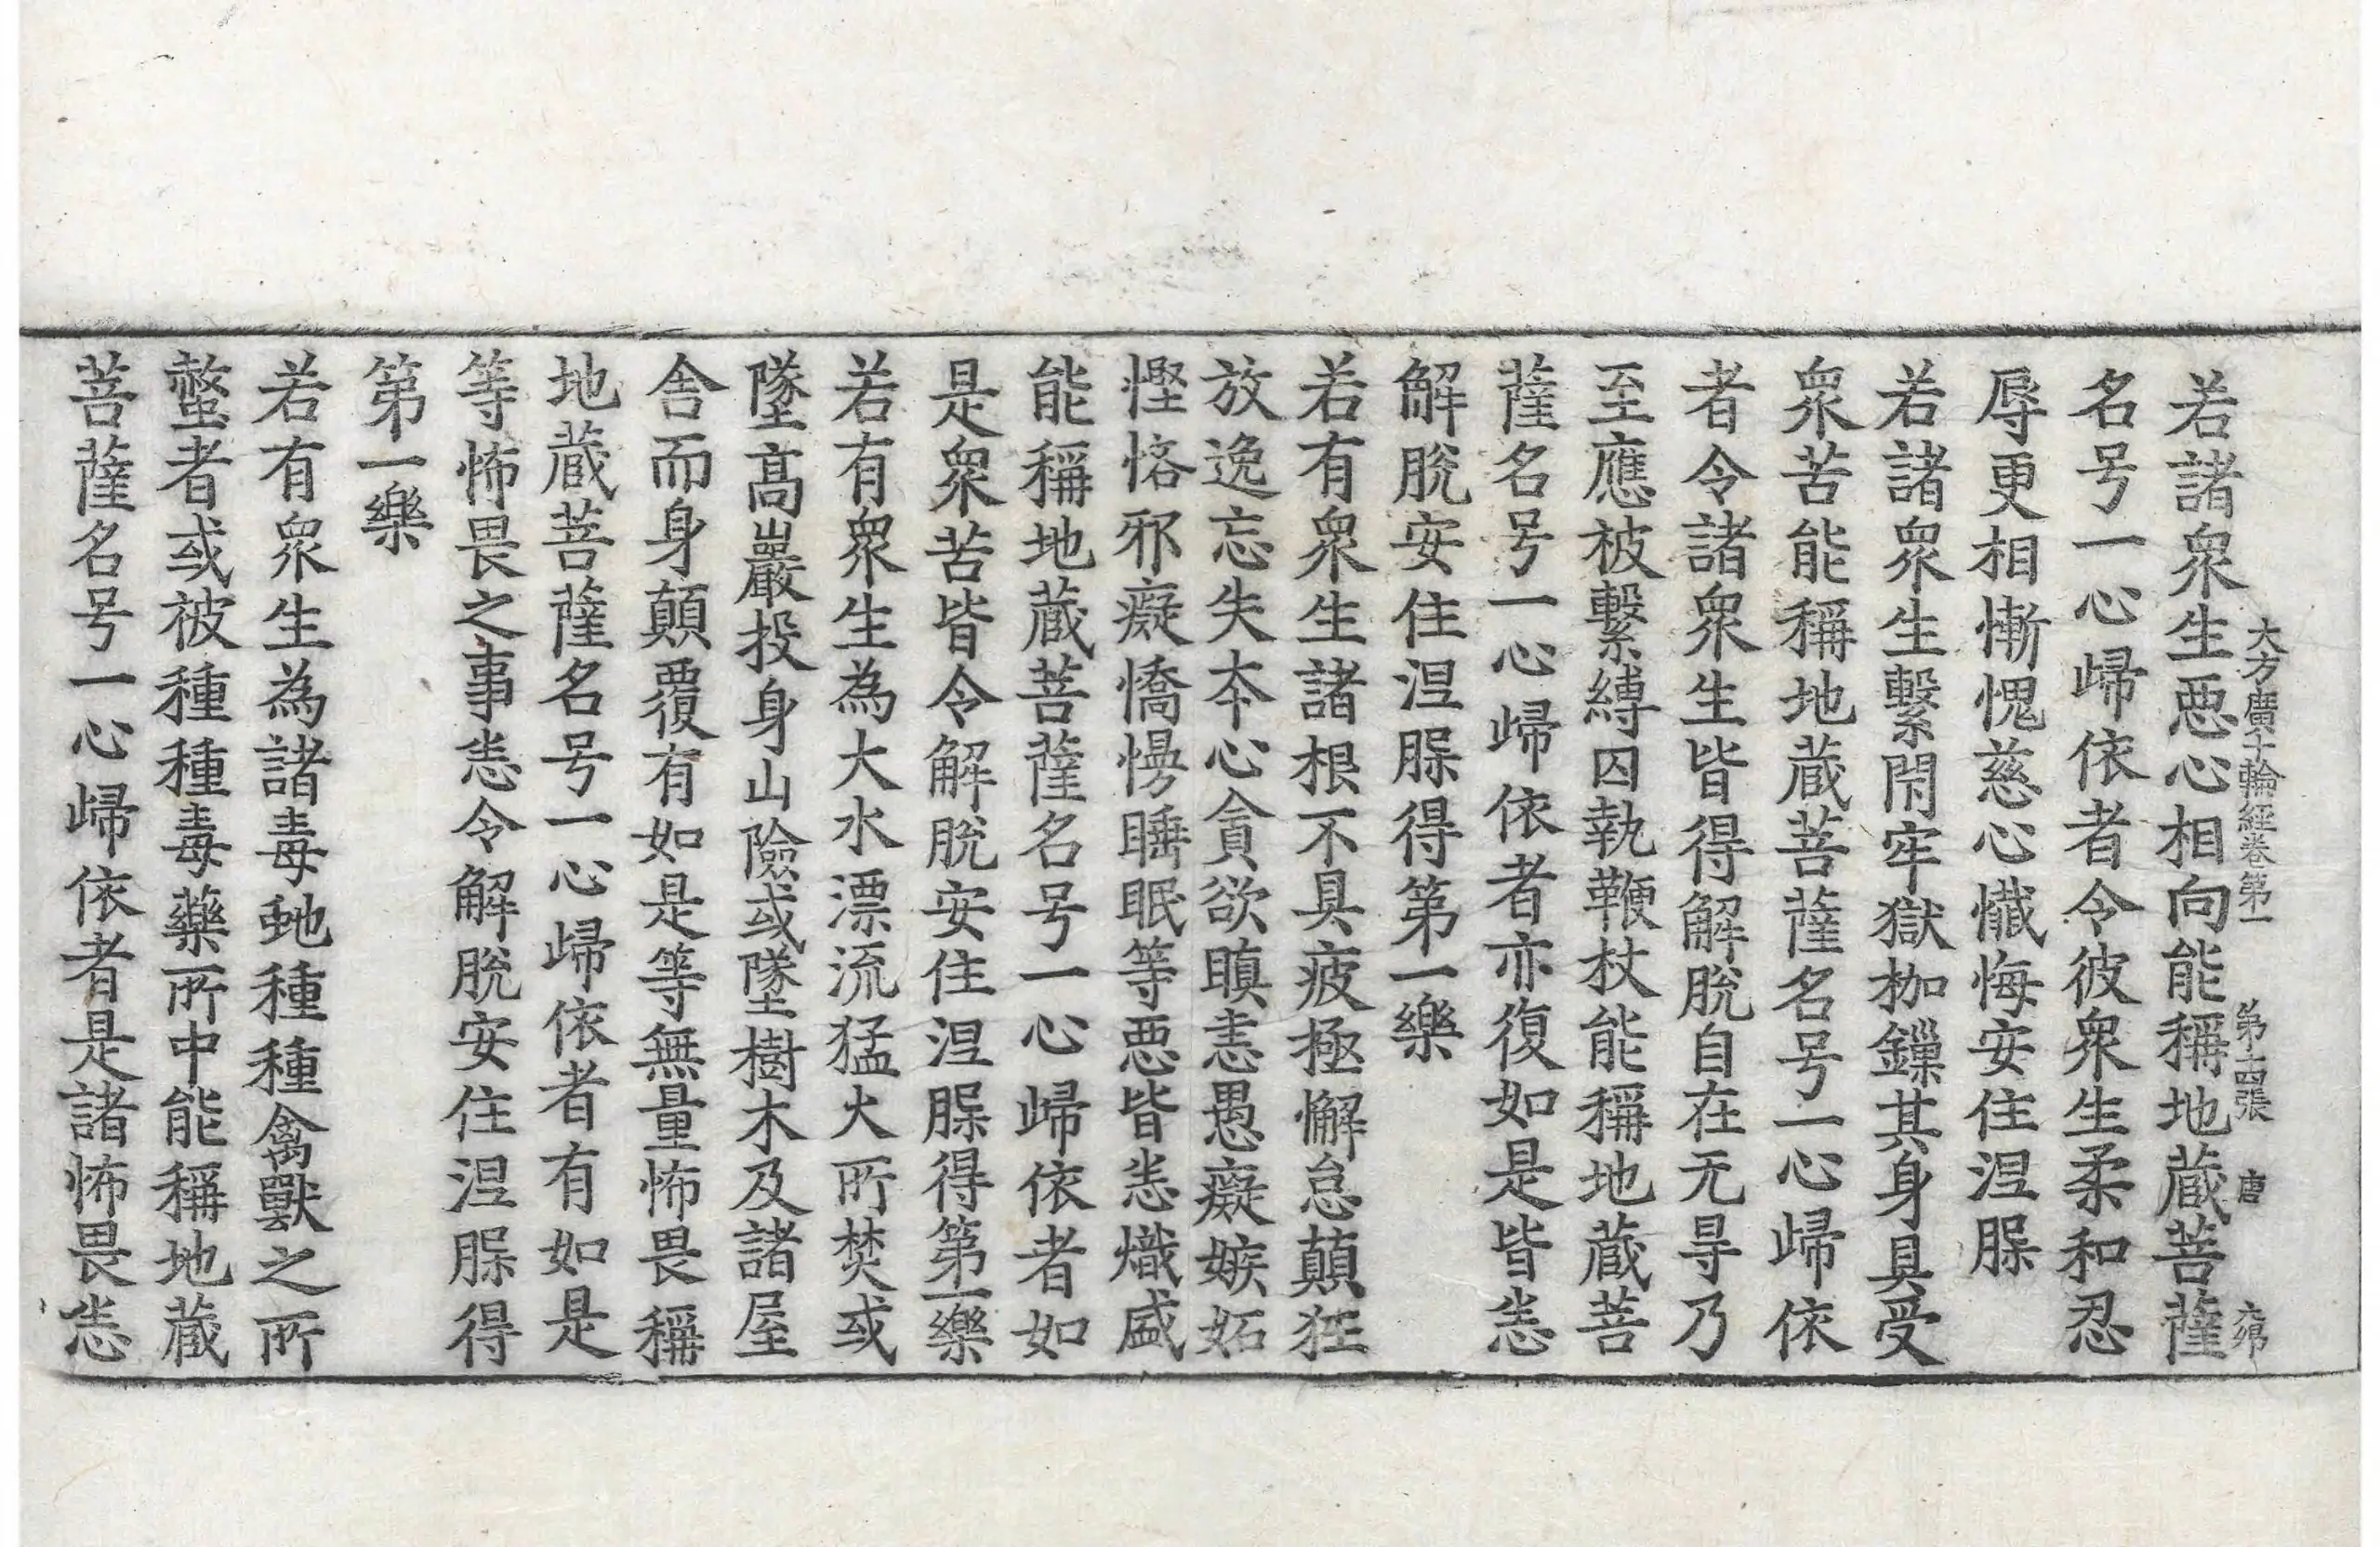 大方廣十輪經卷第一 第十四張 唐
若諸衆生惡心相向能稱地蔵菩薩
名号一心歸依者令彼衆生柔和忍
辱更相慚愧慈心懺悔安住涅槃
若諸衆生繫閇牢獄枷鏁其身具受
衆苦能稱地蔵菩薩名号一心歸依
者令諸衆生皆得解脫自在无㝵乃
至應被繫縛囚執鞭杖能稱地蔵菩
薩名号一心歸依者亦復如是皆悉
解脫安住涅槃得第一樂
若有衆生諸根不具疲極懈怠顛狂
放逸忘失夲心貪欲瞋恚愚癡嫉妬
慳悋邪癡憍慢睡眠等惡皆悉熾盛
能稱地蔵菩薩名号一心歸依者如
是衆苦皆令解脫安住涅槃得第一樂
若有衆生為大水漂流猛火所焚或
墜髙巖投身山險或墜樹木及諸屋
舎而身顛覆有如是等無量怖畏稱
地蔵菩薩名号一心歸依者有如是
等怖畏之事悉令解脫安住涅槃得
第一樂
若有衆生為諸毒虵種種禽獸之所
螫者或被種種毒藥所中能稱地蔵
菩薩名号一心歸依者是諸怖畏悉